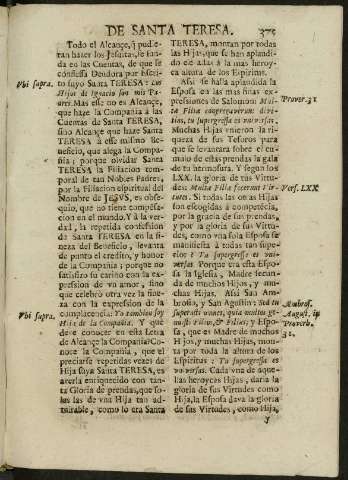 DE SANTA TERESA. 375
Todo el Alcançe, q̃ pudie-
ran hazer los Jesuitas, se fun-
da en las Cuentas, de que se
confiessa Deudora por Escri-
Vbi supra.
to suyo Santa TERESA: Los
Hijos de Ignacio son mis Pa-
dres. Mas esse no es Alcançe,
que haze la Compañia à las
Cuentas de Santa TERESA,
sino Alcançe que haze Santa
TERESA à esse mismo Bene-
ficio, que alega la Compa-
ñia; porque olvidar Santa
TERESA la Filiacion tempo-
ral de tan Nobles Padres,
por la Filiacion espiritual del
Nombre de JESVS, es obse-
quio, que no tiene compen-
sacion en el mundo. Y à la ver-
dad, la repetida confession
de Santa TERESA en la fi-
neza del Beneficio, levanta
de punto el credito, y honor
de la Compañia; porque no
satisfizo su cariño con la ex-
pression de vn amor, sino
que celebrò otra vez la fineza
con la expression de la
Vbi supra.
complacencia: Yo tambien soy
Hija de la Compañia. Y què
debe conocer en esta Letra
de Alcançe la Compañia? Co-
noce la Compañia, que el
preciarse repetidas vezes de
Hija suya Santa TERESA, es
averla enriquecido con tan-
ta Gloria de prendas, que so-
las las de vna Hija tan ad-
mirable, como lo era Santa
TERESA, montan por todas
las Hijas, que se han aplaudi-
do en edades à la mas heroy-
ca altura de los Espiritus.
Assi se halla aplaudida la
Esposa en las mas finas ex-
pressiones de Salomon: Mul-
Prover. 31
tæ Filiæ congregaverunt divi-
tias, tu supergressa es vniversas:
Muchas Hijas vnieron la ri-
queza de sus Tesoros para
que se levantàra sobre el cu-
mulo de essas prendas la gala
de tu hermosura. Y segun los
LXX. la gloria de tus Virtu-
des: Multæ Filiæ fecerunt Vir-
Vers. LXX
tutes. Si todas las otras Hijas
son escogidas à competécia,
por la gracia de sus prendas,
y por la gloria de sus Virtu-
des, como vna sola Esposa se
manifiesta à todas tan supe-
rior? Tu supergressa es vni-
versas. Porque era esta Espo-
sa la Iglesia, Madre fecun-
da de muchos Hijos, y mu-
chas Hijas. Assi San Am-
Ambros.
brosio, y San Agustin: Sed tu
August. in
superasti omnes, quia multos ge-
Proverb.
nuisti Filios, & Filias; y Espo-
31.
sa, que es Madre de muchos
Hijos, y muchas Hijas, mon-
ta por toda la altura de los
Espiritus: Tu supergressa es
vniversas. Cada vna de aque-
llas heroycas Hijas, daria la
gloria de sus Virtudes como
Hija, la Esposa dava la gloria
de sus Virtudes, como Hija,
y